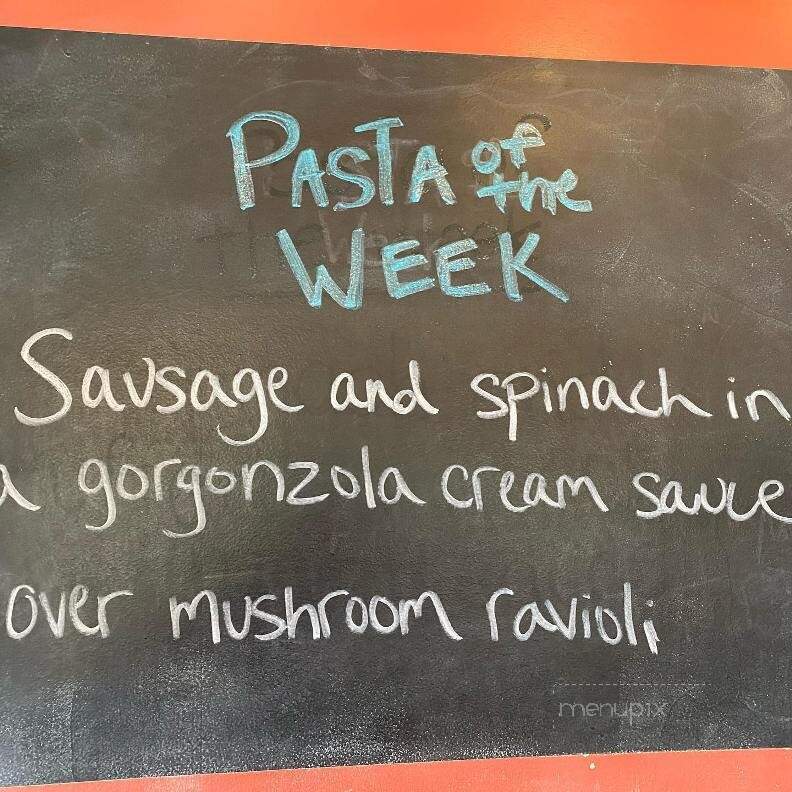 PASTA of
the
WEEK
Sausage and spinach in
a gorgonzola cream sauce
over mushroom ravioli
menupix